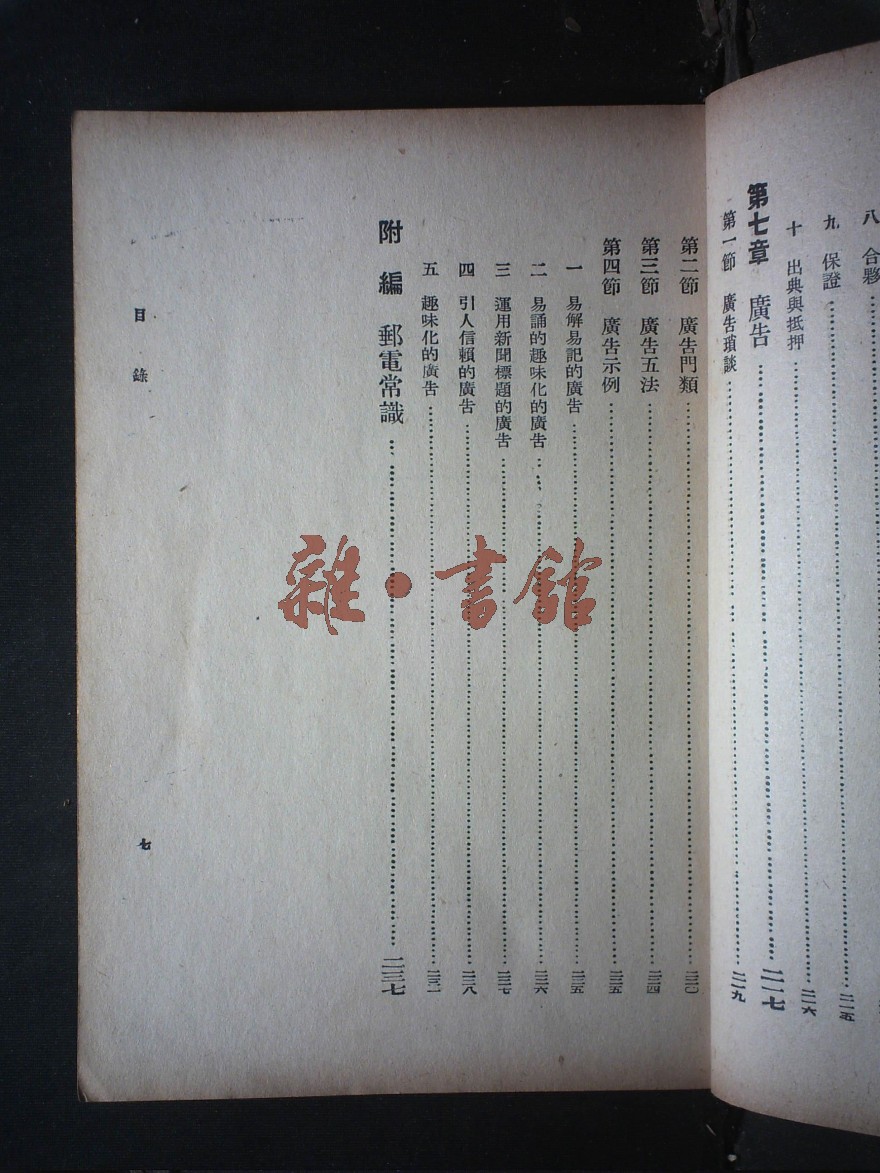 八 合夥
九 保證……二一五
十 出典與抵押……二一六
第七章 廣告……二一七
第一節 廣告瑣談……二一九
第二節 廣告門類……二二〇
第三節 廣告五法……二二四
第四節 廣告示例……二二五
一 易解易記的廣告……二二五
二 易誦的趣味化的廣告……二二六
三 運用新聞標題的廣告……二二七
四 引人信賴的廣告……二二八
五 趣味化的廣告……二三二
附編 郵電常識……二三七
目錄
七
雜·書館